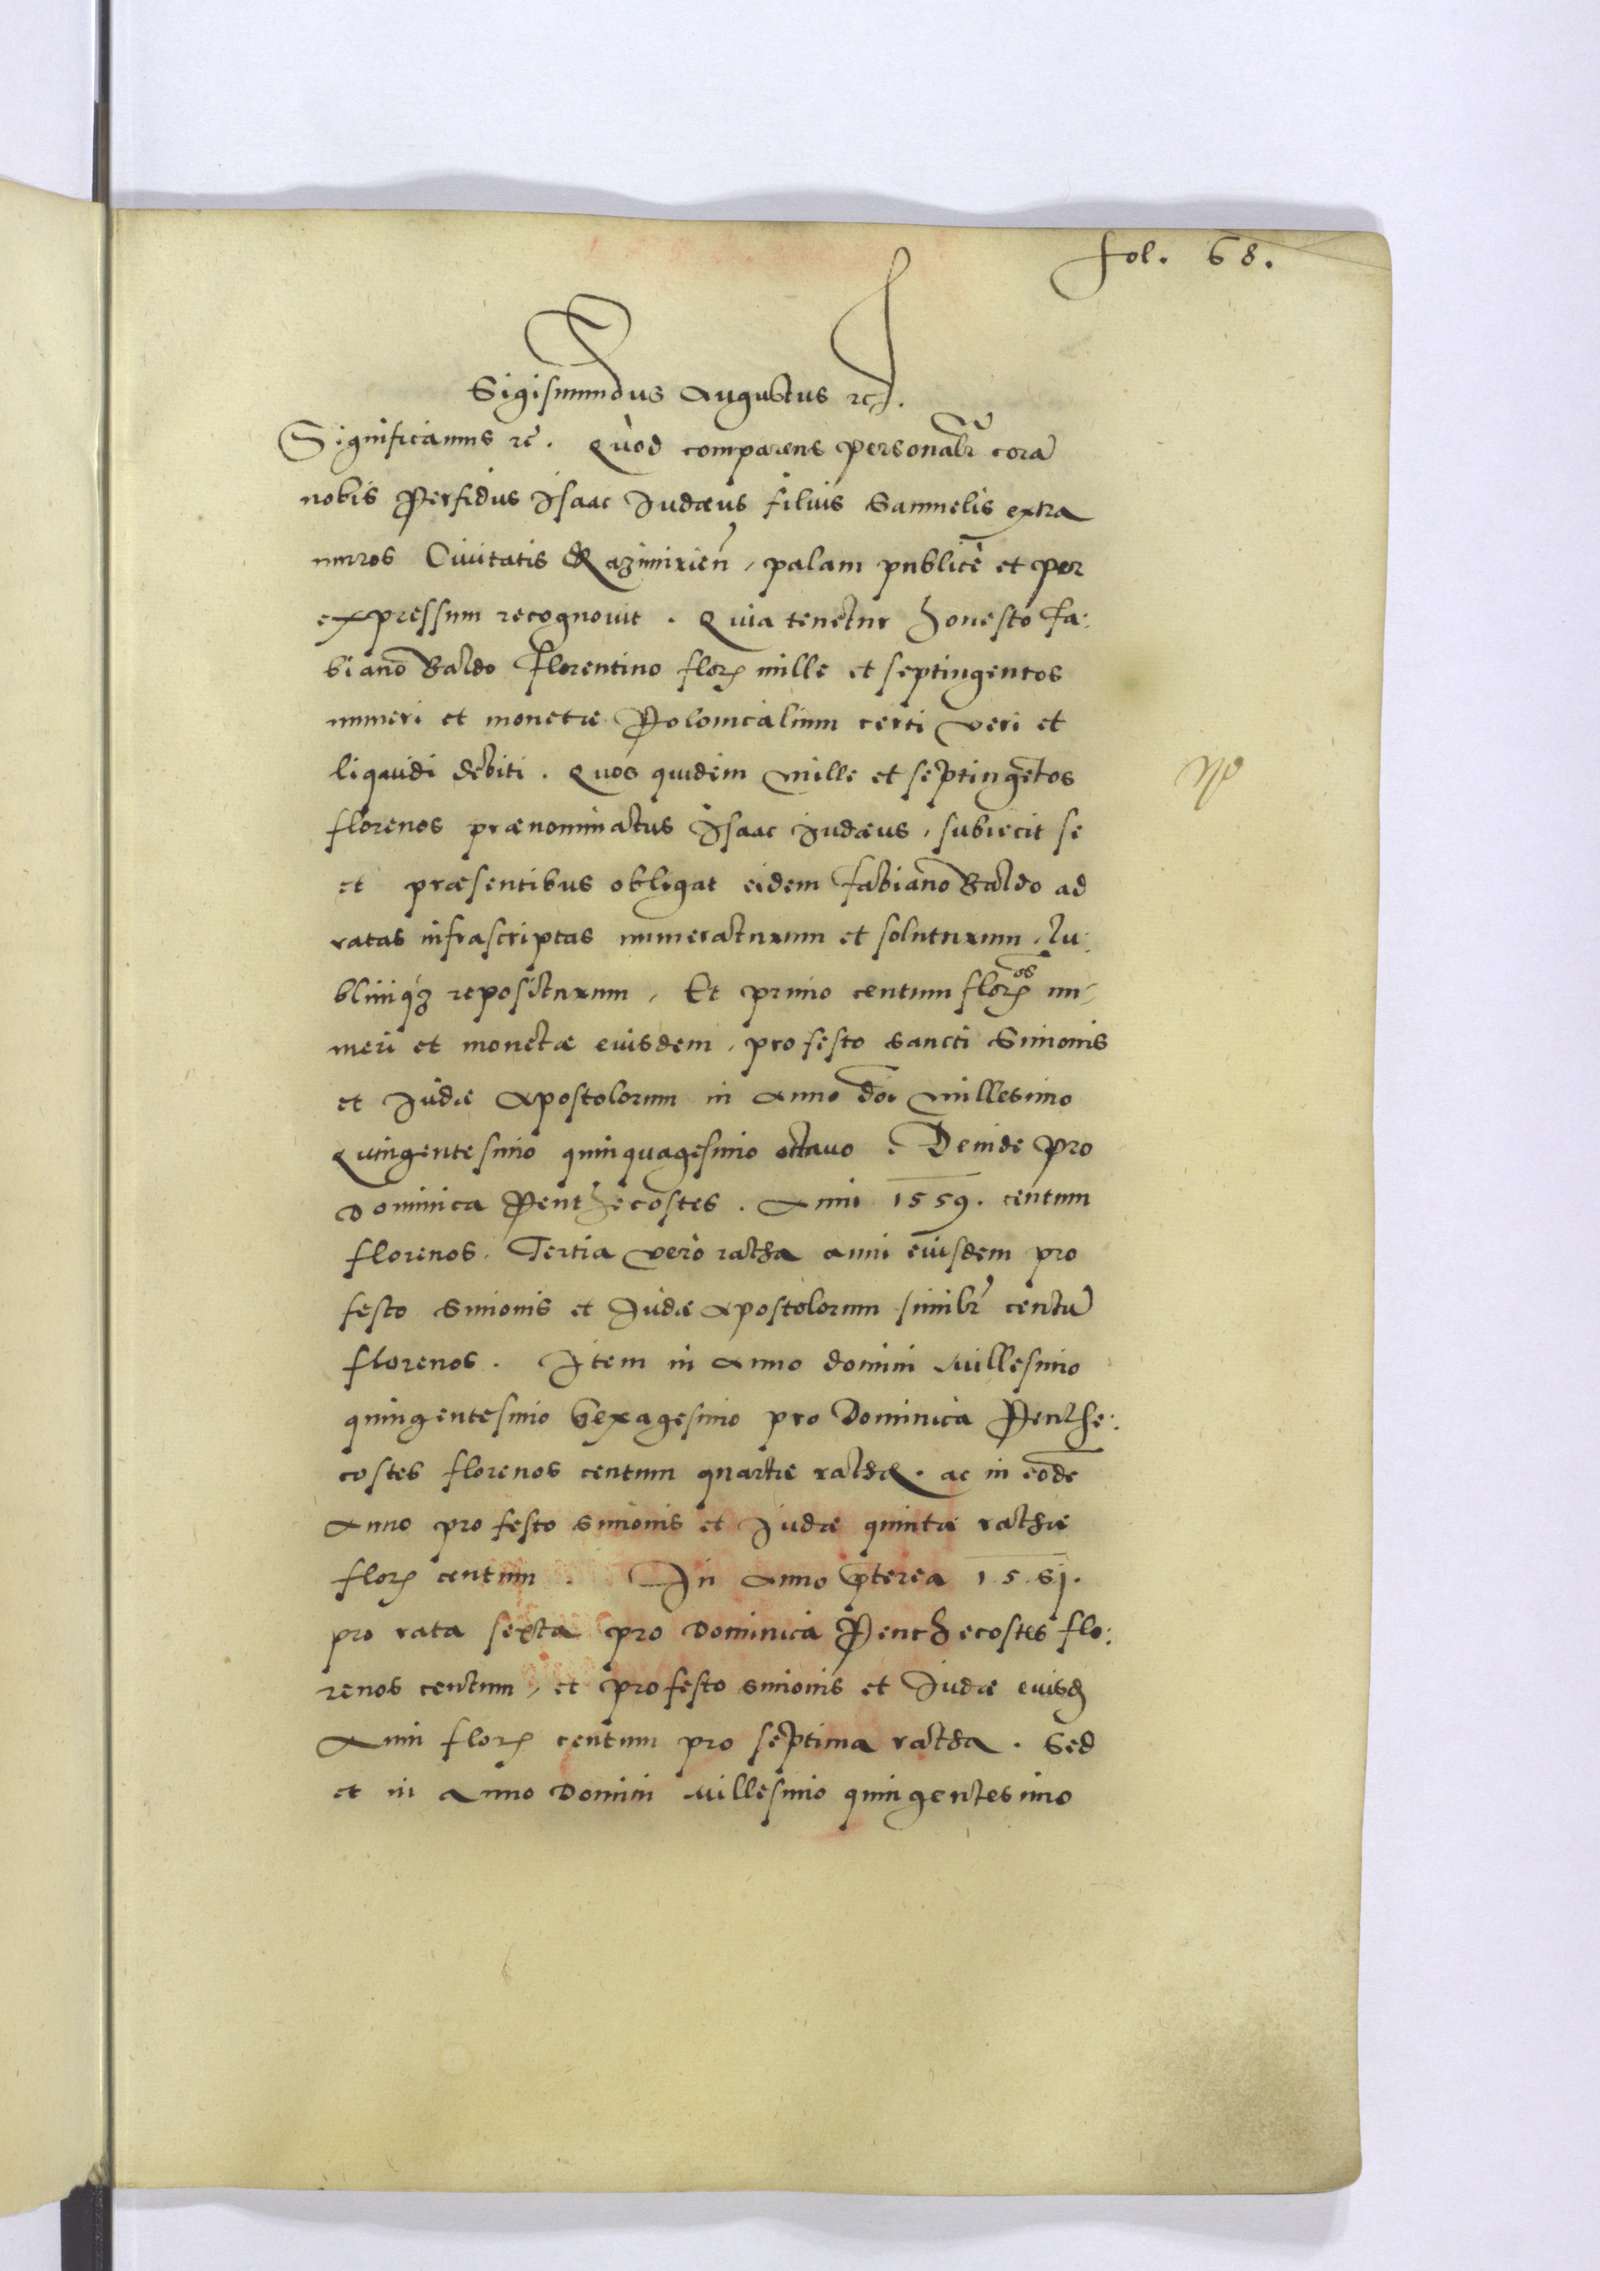 fol. 68.
Sigismundus Augustus etc.
Significamus etc. Quod comparens personalr corā
nobis Perfidus Isaac Iudaeus filius Samuelis extra
muros Civitatis Kazimirien̄, palam publicè et per
expressum recognovit. Quia tenetur honesto Fa:
biano Baldo Florentino floꝝ mille et septingentos
numeri et monetae Polonicalium certi veri et
liquidi debiti. Quos quidem mille et septingētos
florenos praenominatus Isaac Iudaeus, subiecit se
et praesentibus obligat eidem Fabiano Baldo ad
ratas infrascriptas numeraturum et soluturum, Lu:
bliniqꝫ repositurum, Et primo centum floꝝos nu-
meri et monetae eiusdem, pro festo sancti Simonis
et Iudae Apostolorum in Anno doi millesimo
Quingentesimo quinquagesimo octavo. Deinde pro
Dominica Penthecostes. Anni 1559. centum
florenos. Tertia verò ratha anni eiusdem pro
festo Simonis et Iudae Apostolorum similr centū
florenos. Item in Anno domini millesimo
quingentesimo Sexagesimo pro Dominica Penthe:
costes florenos centum quartae rathae. ac in eodē
Anno pro festo Simonis et Iudae quintae rathae
floꝝ centum. In Anno p̄terea 1561.
pro rata sexta pro Dominica Penthecostes flo:
renos centum, et pro festo Simonis et Iudae eiusd
Anni floꝝ centum pro septima ratha. Sed
et in Anno Domini millesimo quingentesimo